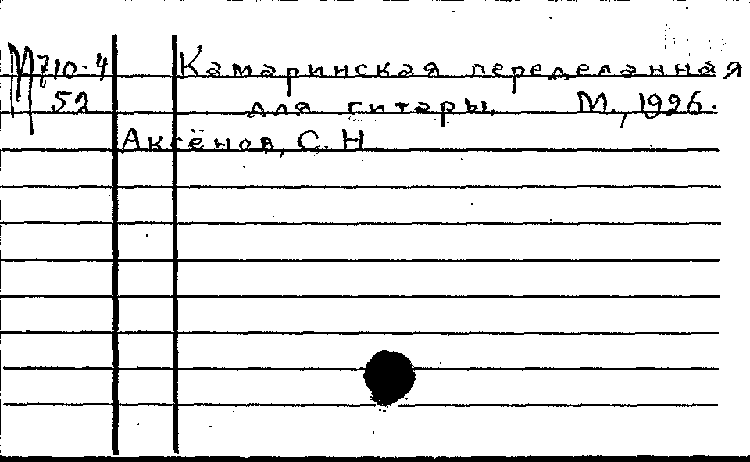 М710-4 Камаринская переделанная
52 для гитары. М., 1926.
Аксёнов, С. Н